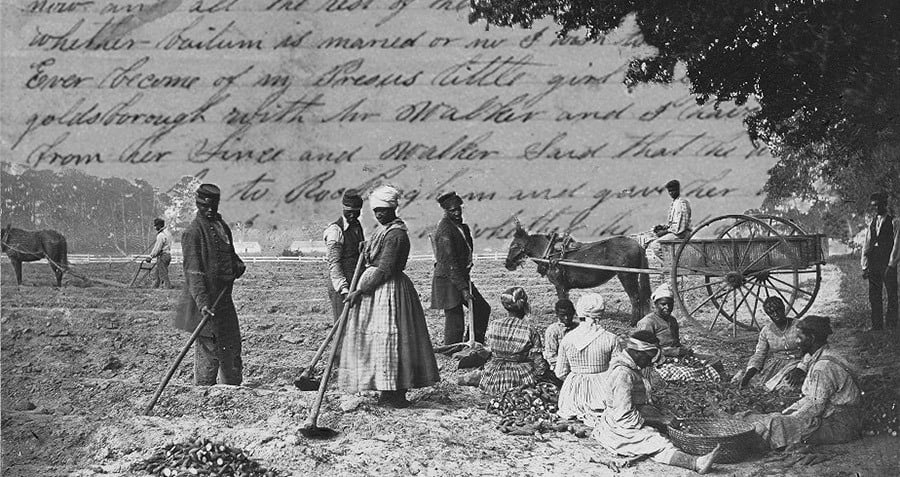 now and all the rest of the
whether baitum is maried or no I wish
Ever become of my Presus little girl
goldsborough with Mr Walker and I
from her Since and Walker Said that he
to Rockingham and gave her